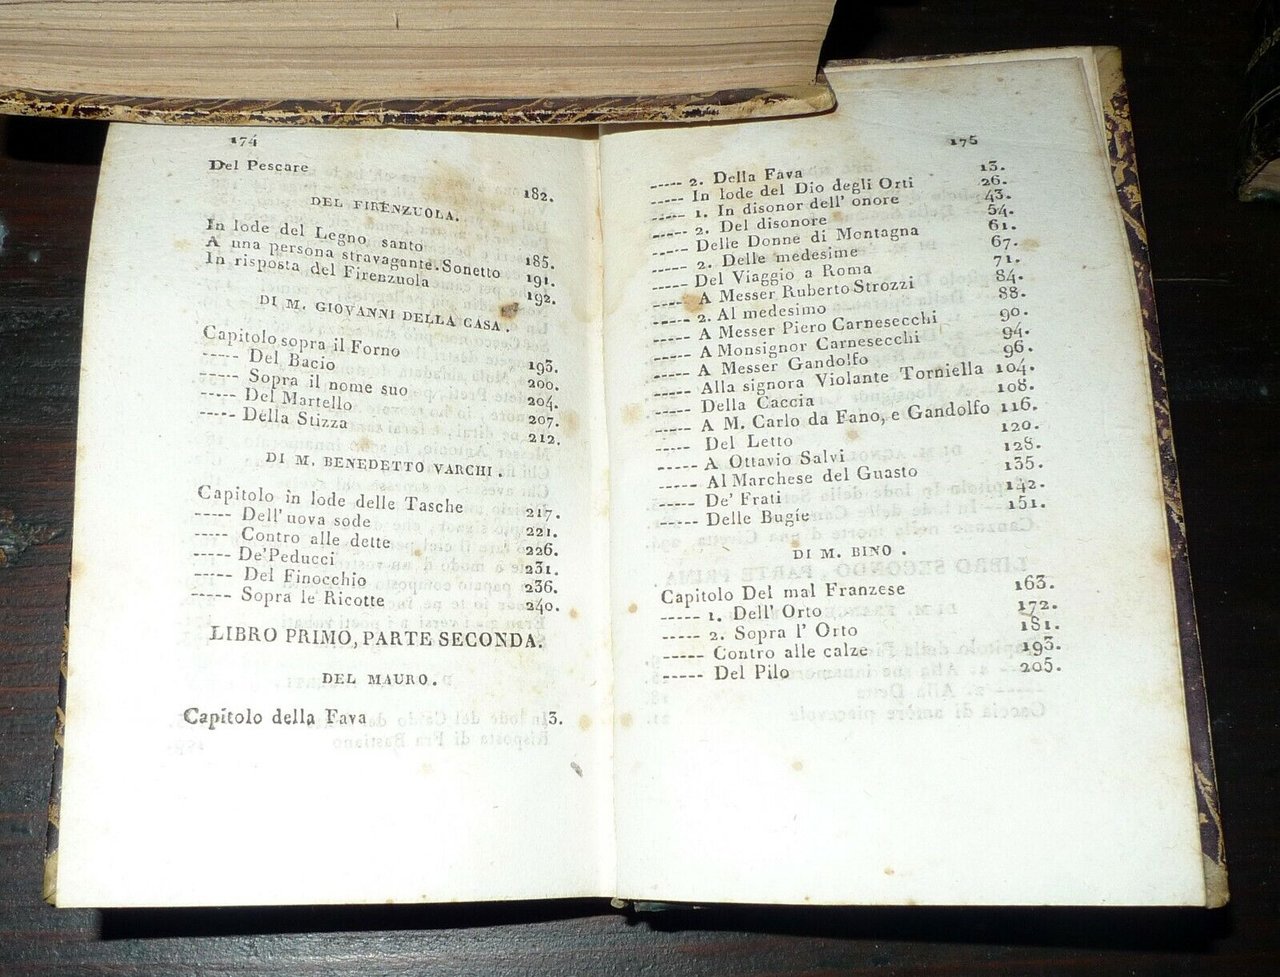 174
Del Pescare 182.
DEL FIRENZUOLA.
In lode del Legno santo 185.
A una persona stravagante. Sonetto 191.
In risposta del Firenzuola 192.
DI M. GIOVANNI DELLA CASA.
Capitolo sopra il Forno 193.
----- Del Bacio 200.
----- Sopra il nome suo 204.
----- Del Martello 207.
----- Della Stizza 212.
DI M. BENEDETTO VARCHI.
Capitolo in lode delle Tasche 217.
----- Dell'uova sode 221.
----- Contro alle dette 226.
----- De'Peducci 231.
----- Del Finocchio 236.
----- Sopra le Ricotte 240.
LIBRO PRIMO, PARTE SECONDA.
DEL MAURO.
Capitolo della Fava 3.
175
----- 2. Della Fava 13.
----- In lode del Dio degli Orti 26.
----- 1. In disonor dell' onore 43.
----- 2. Del disonore 54.
----- Delle Donne di Montagna 61.
----- 2. Delle medesime 67.
----- Del Viaggio a Roma 71.
----- A Messer Ruberto Strozzi 84.
----- 2. Al medesimo 88.
----- A Messer Piero Carnesecchi 90.
----- A Monsignor Carnesecchi 94.
----- A Messer Gandolfo 96.
----- Alla signora Violante Torniella 104.
----- Della Caccia 108.
----- A M. Carlo da Fano, e Gandolfo 116.
----- Del Letto 120.
----- A Ottavio Salvi 128.
----- Al Marchese del Guasto 135.
----- De' Frati 142.
----- Delle Bugie 151.
DI M. BINO .
Capitolo Del mal Franzese 163.
----- 1. Dell' Orto 172.
----- 2. Sopra l' Orto 181.
----- Contro alle calze 193.
----- Del Pilo 205.